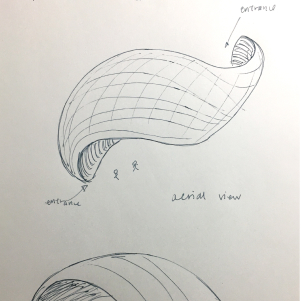 entrance
entrance
aerial view